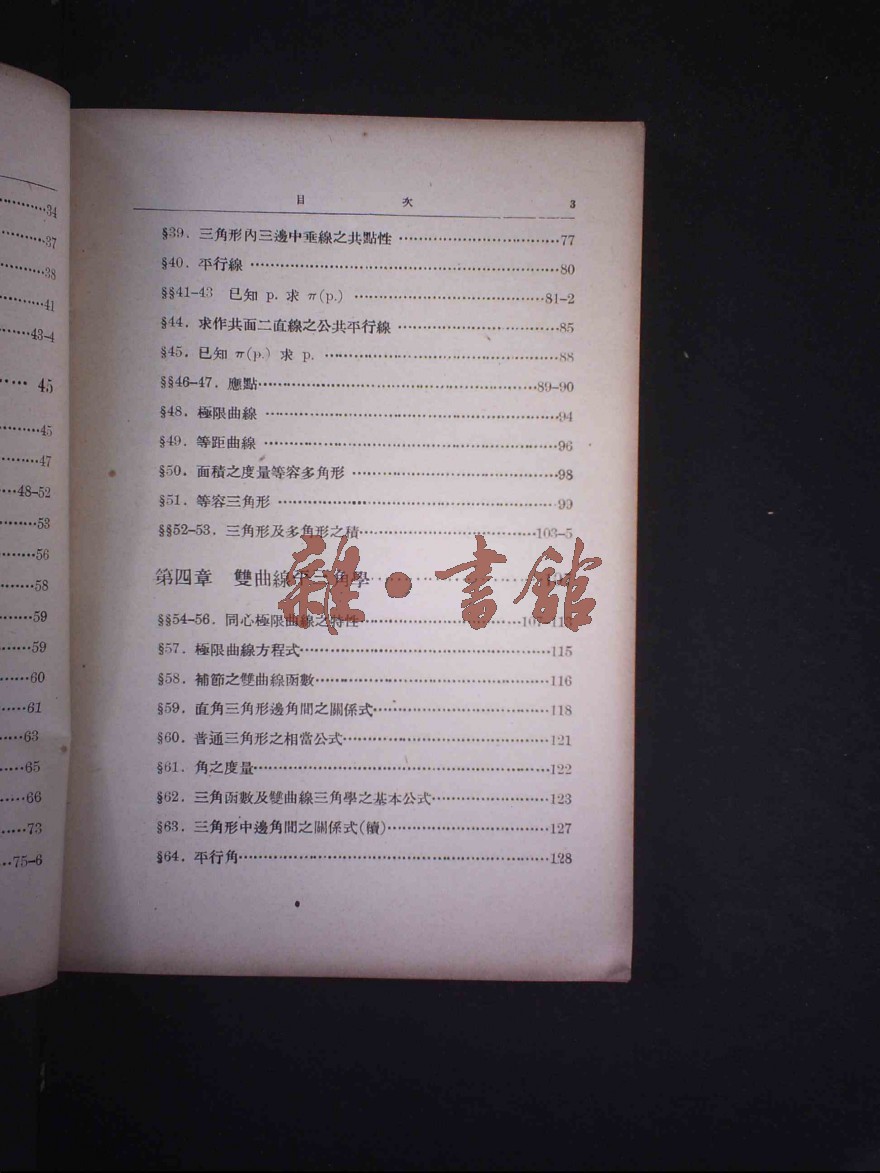 34
37
38
41
43-4
45
45
47
48-52
53
56
58
59
59
60
61
63
65
66
73
75-6
目 次 3
§39. 三角形內三邊中垂線之共點性 77
§40. 平行線 80
§§41-43 已知 p. 求 π(p.) 81-2
§44. 求作共面二直線之公共平行線 85
§45. 已知 π(p.) 求 p. 88
§§46-47. 應點 89-90
§48. 極限曲線 94
§49. 等距曲線 96
§50. 面積之度量等容多角形 98
§51. 等容三角形 99
§§52-53. 三角形及多角形之積 103-5
第四章 雙曲線平三角學 107
§§54-56. 同心極限曲線之特性 107-
§57. 極限曲線方程式 115
§58. 補節之雙曲線函數 116
§59. 直角三角形邊角間之關係式 118
§60. 普通三角形之相當公式 121
§61. 角之度量 122
§62. 三角函數及雙曲線三角學之基本公式 123
§63. 三角形中邊角間之關係式(續) 127
§64. 平行角 128
雜·書館